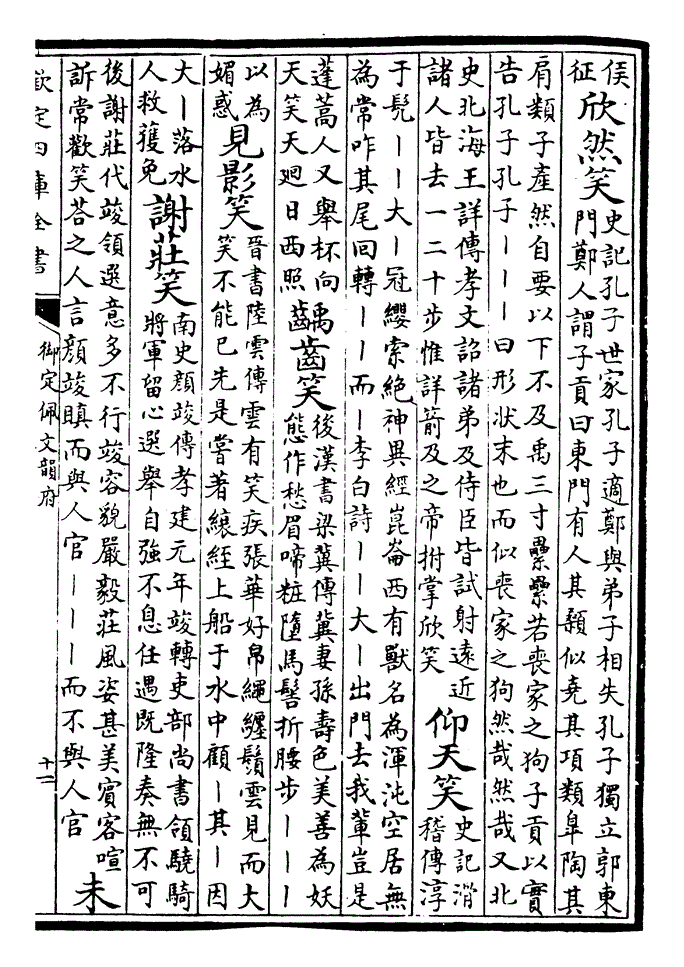 侯
征
欣然笑
史記孔子世家孔子適鄭與弟子相失孔子獨立郭東
門鄭人謂子貢曰東門有人其顙似堯其項類皋陶其
肩類子產然自要以下不及禹三寸纍纍若喪家之狗子貢以實
告孔子孔子丨丨丨曰形狀末也而似喪家之狗然哉然哉又北
史北海王詳傳孝文詔諸弟及侍臣皆試射遠近
諸人皆去一二十步惟詳箭及之帝拊掌欣笑
仰天笑
史記滑
稽傳淳
于髡丨丨大丨冠纓索絕神異經崑崙西有獸名為渾沌空居無
為常咋其尾回轉丨丨而丨李白詩丨丨大丨出門去我輩豈是
蓬蒿人又舉杯向
天笑天廻日西照
齲齒笑
後漢書梁冀傳冀妻孫壽色美善為妖
態作愁眉啼粧墮馬髻折腰步丨丨丨
以為
媚惑
見影笑
晉書陸雲傳雲有笑疾張華好帛繩纏鬚雲見而大
笑不能已先是嘗著縗絰上船于水中顧丨其丨因
大丨落水
人救獲免
謝莊笑
南史顏竣傳孝建元年竣轉吏部尚書領驍騎
將軍留心選舉自強不息任遇既隆奏無不可
後謝莊代竣領選意多不行竣容貌嚴毅莊風姿甚美賓客喧
訴常歡笑荅之人言顏竣瞋而與人官丨丨丨而不與人官
未
欽定四庫全書
御定佩文韻府
十二